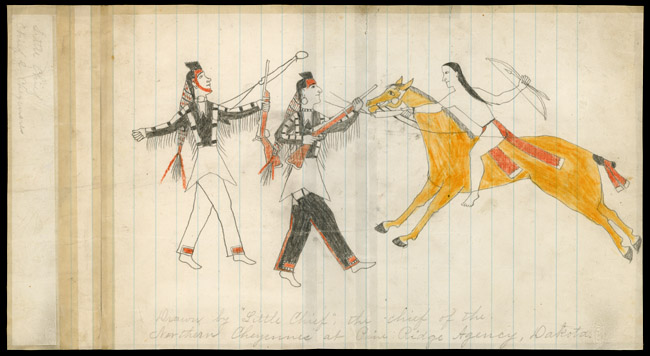 Little Chief
Drawn by "Little Chief" the chief of the
Northern Cheyennes at Pine Ridge Agency, Dakota.